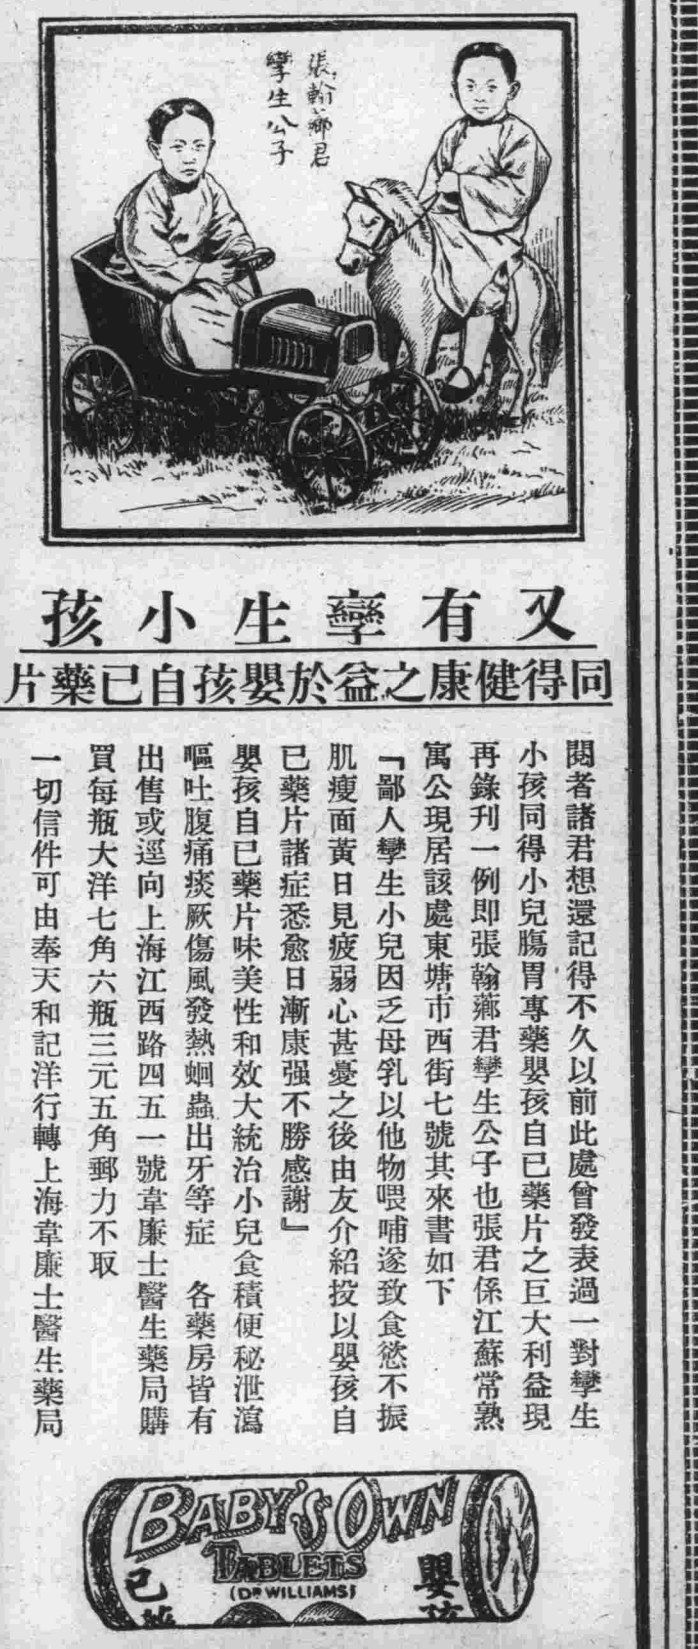 張翰薌君
孿生公子
又有孿生小孩
同得健康之益於嬰孩自己藥片
閱者諸君想還記得不久以前此處曾發表過一對孿生
小孩同得小兒腸胃專藥嬰孩自己藥片之巨大利益現
再錄刊一例即張翰薌君孿生公子也張君係江蘇常熟
寓公現居該處東塘市西街七號其來書如下
『鄙人孿生小兒因乏母乳以他物喂哺遂致食慾不振
肌瘦面黃日見疲弱心甚憂之後由友介紹投以嬰孩自
己藥片諸症悉愈日漸康强不勝感謝』
嬰孩自己藥片味美性和效大統治小兒食積便秘泄瀉
嘔吐腹痛痰厥傷風發熱蛔蟲出牙等症 各藥房皆有
出售或逕向上海江西路四五一號韋廉士醫生藥局購
買每瓶大洋七角六瓶三元五角郵力不取
一切信件可由奉天和記洋行轉上海韋廉士醫生藥局
BABY'S OWN
TABLETS
(DR WILLIAMS)
嬰孩
己藥